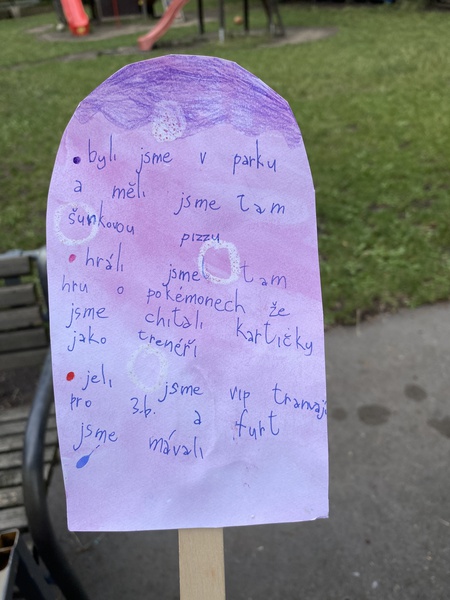 byli jsme v parku
a měli jsme tam
šunkovou pizzu
hráli jsme tam
hru o pokémonech že
jsme chitali kartičky
jako trenéři
jeli jsme vip tramvaj
pro 3.b. a furt
jsme mávali